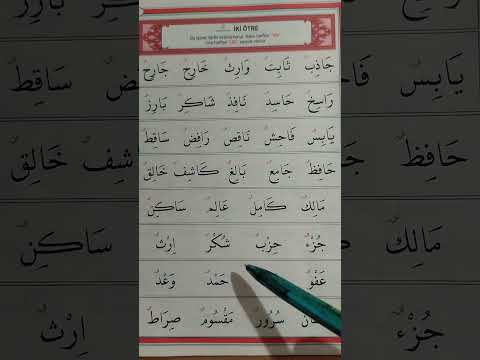 İKİ ÖTRE
جَاذِبٌ ثَابِتٌ وَارِثٌ خَارِجٌ جَارِحٌ
رَاسِخٌ حَاسِدٌ نَافِذٌ شَاكِرٌ بَارِزٌ
يَابِسٌ فَاحِشٌ نَاقِصٌ رَافِضٌ سَاقِطٌ
حَافِظٌ جَامِعٌ بَالِغٌ كَاشِفٌ خَالِقٌ
مَالِكٌ كَامِلٌ عَالِمٌ سَاكِنٌ
جُزْءٌ حِزْبٌ شُكْرٌ اِرْثٌ
عَفْوٌ حَمْدٌ وَعْدٌ
سُرُورٌ مَقْسُومٌ صِرَاطٌ